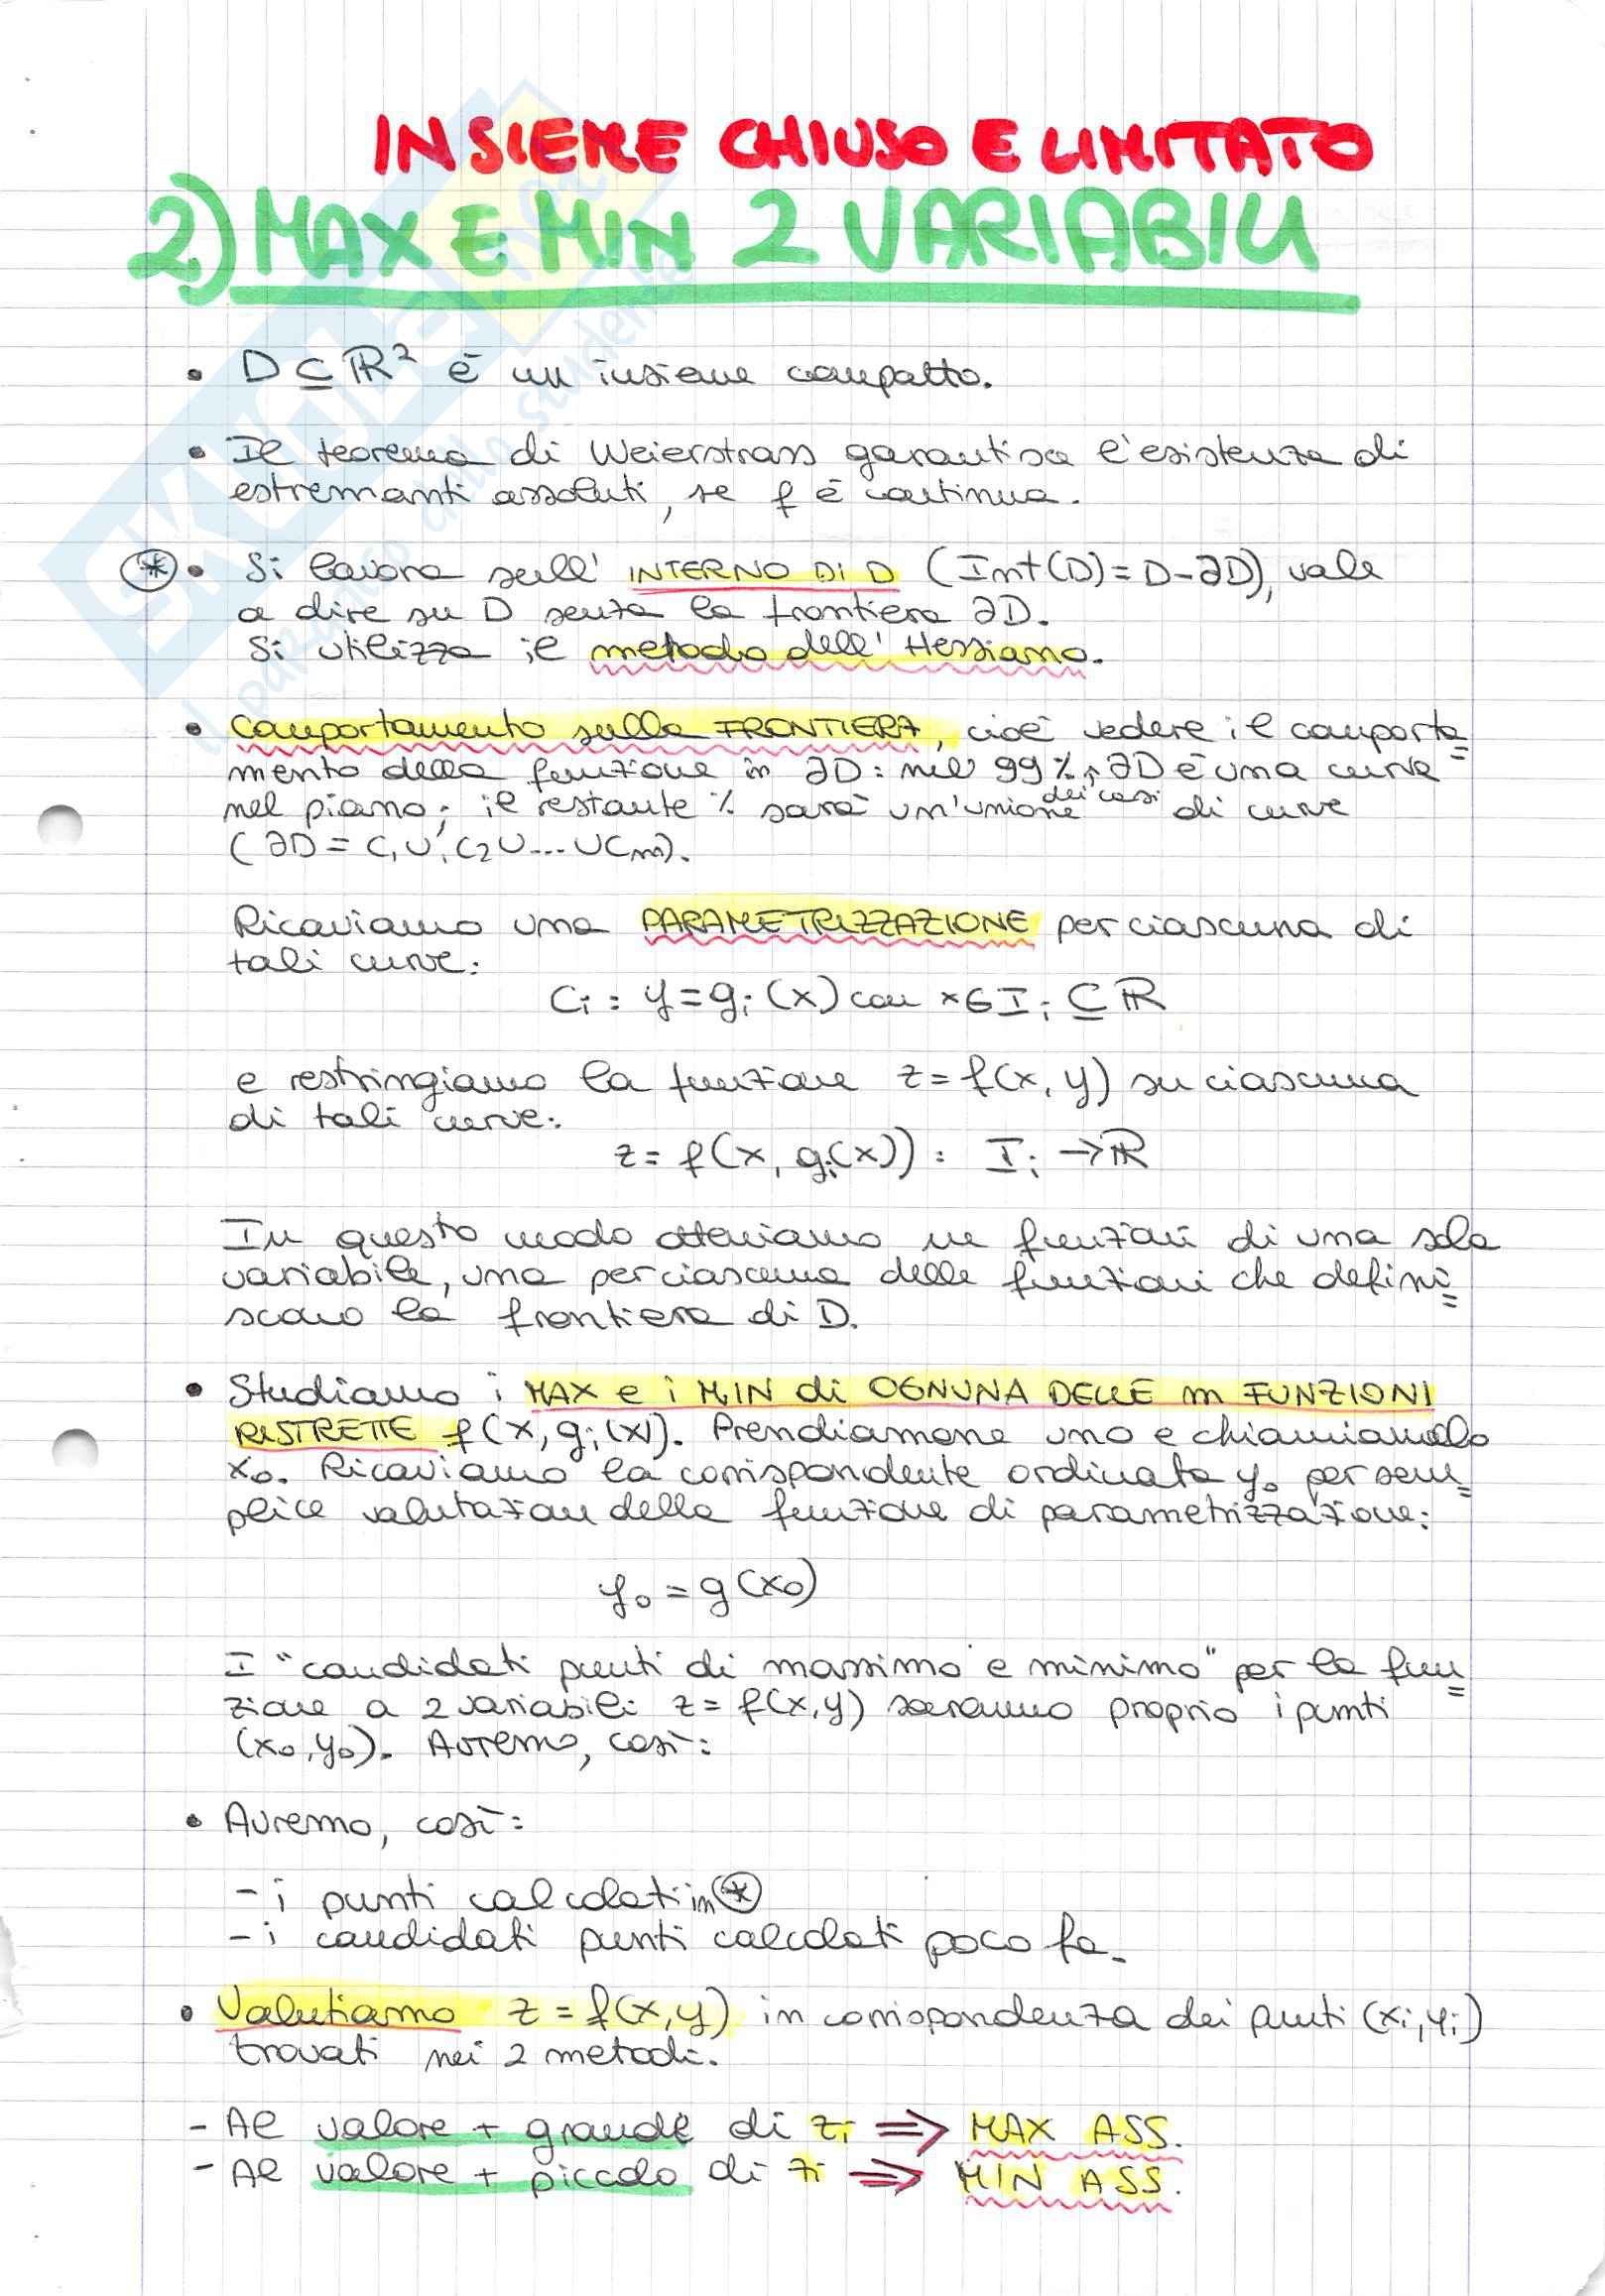 INSIEME CHIUSO E LIMITATO
2) MAX E MIN 2 VARIABILI
• D ⊆ ℝ² è un insieme compatto.
• Il teorema di Weierstrass garantisce l'esistenza di
estremanti assoluti, se f è continua.
⊛ • Si lavora sull' INTERNO DI D (Int(D) = D - ∂D), vale
a dire su D senza la frontiera ∂D.
Si utilizza il metodo dell' Hessiano.
• Comportamento sulla FRONTIERA, cioè vedere il comporta=
mento della funzione in ∂D: nel 99% dei casi ∂D è una curva
nel piano; il restante % sarà un'unione di curve
(∂D = C₁ ∪ C₂ ∪ ... ∪ Cm).
Ricaviamo una PARAMETRIZZAZIONE per ciascuna di
tali curve:
Ci : y = gi(x) con x ∈ Ii ⊆ ℝ
e restringiamo la funzione z = f(x, y) su ciascuna
di tali curve:
z = f(x, gi(x)) : Ii → ℝ
In questo modo otteniamo m funzioni di una sola
variabile, una per ciascuna delle funzioni che defini=
scono la frontiera di D.
• Studiamo i MAX e i MIN di OGNUNA DELLE m FUNZIONI
RISTRETTE f(x, gi(x)). Prendiamone uno e chiamiamolo
x₀. Ricaviamo la corrispondente ordinata y₀ per sem=
plice valutazione della funzione di parametrizzazione:
y₀ = g(x₀)
I "candidati punti di massimo e minimo" per la fun=
zione a 2 variabili z = f(x, y) saranno proprio i punti
(x₀, y₀). Avremo, così:
• Avremo, così:
- i punti calcolati in ⊛
- i candidati punti calcolati poco fa.
• Valutiamo z = f(x, y) in corrispondenza dei punti (xi, yi)
trovati nei 2 metodi.
- Al valore + grande di zi ⇒ MAX ASS.
- Al valore + piccolo di zi ⇒ MIN ASS.